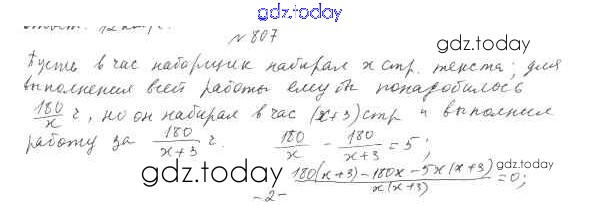 gdz.today
№ 807
gdz.today
Пусть в час наборщик набирал x стр. текста; для
выполнения всей работы ему бы понадобилось
180/x ч, но он набирал в час (x+3) стр и выполнил
работу за 180/(x+3) ч. 180/x - 180/(x+3) = 5;
(180(x+3) - 180x - 5x(x+3))/(x(x+3)) = 0;
gdz.today
gdz.today
-2-